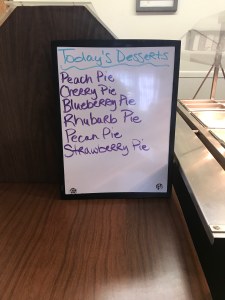 Today's Desserts
Peach Pie
Cherry Pie
Blueberry Pie
Rhubarb Pie
Pecan Pie
Strawberry Pie